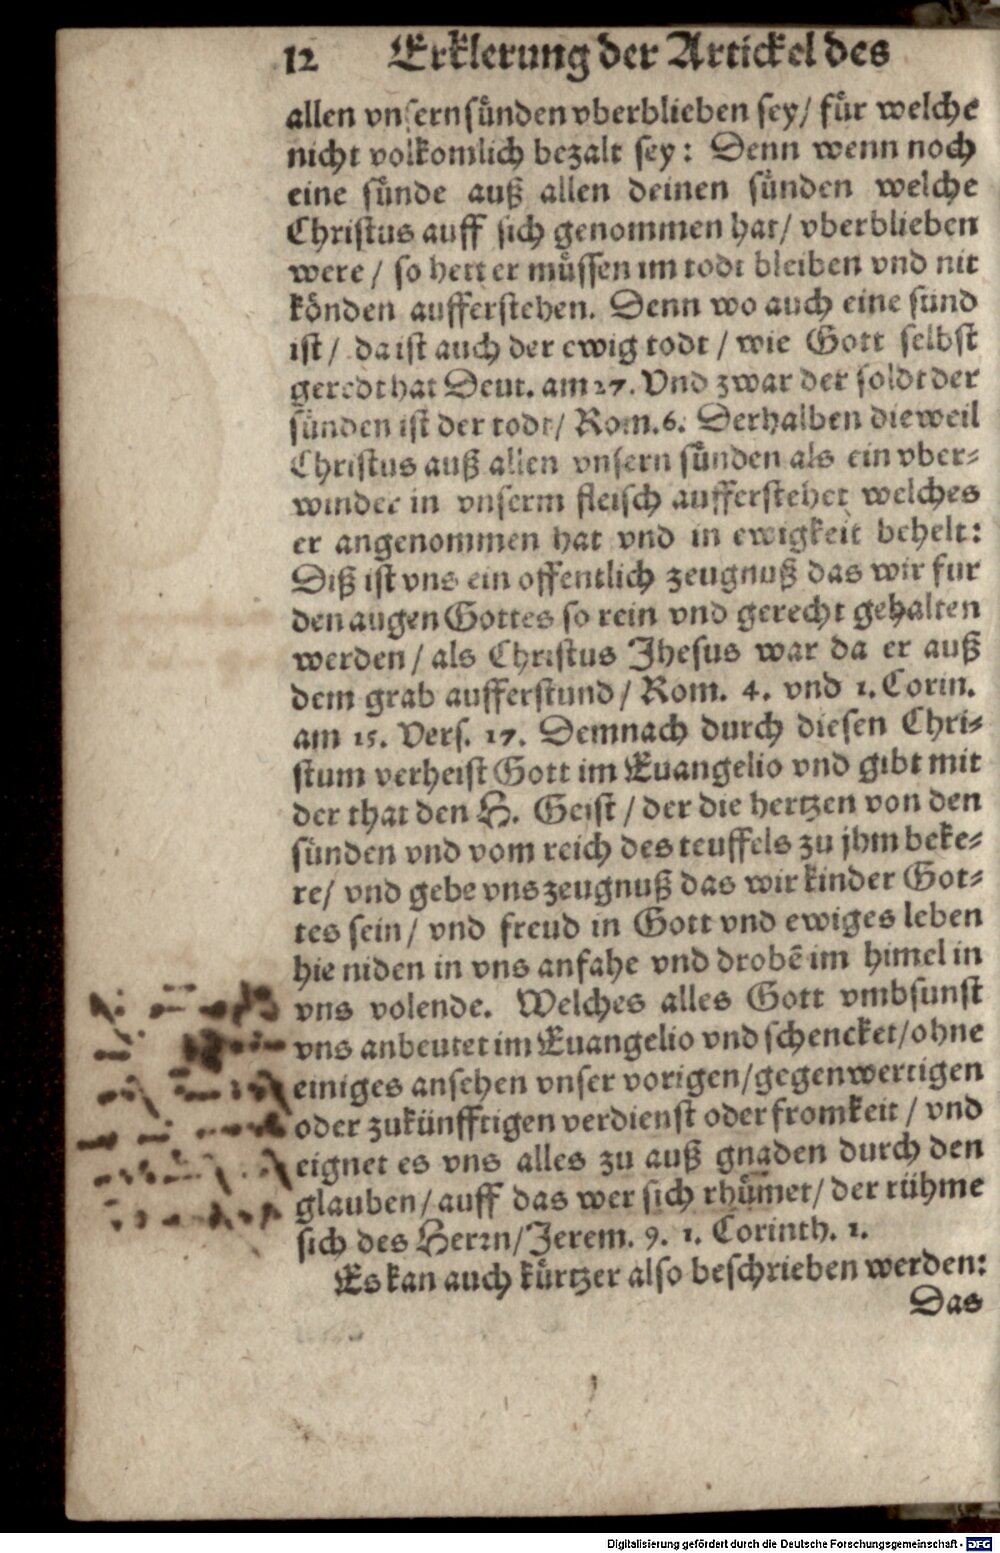 12 Erklerung der Artickel des
allen vnsern sünden vberblieben sey/ für welche
nicht volkomlich bezalt sey: Denn wenn noch
eine sünde auß allen deinen sünden welche
Christus auff sich genommen hat/ vberblieben
were/ so hett er müssen im todt bleiben vnd nit
könden aufferstehen. Denn wo auch eine sünd
ist/ da ist auch der ewig todt/ wie Gott selbst
geredt hat Deut. am 27. Vnd zwar der soldt der
sünden ist der todt/ Rom. 6. Derhalben dieweil
Christus auß allen vnsern sünden als ein vber-
winder in vnserm fleisch aufferstehet welches
er angenommen hat vnd in ewigkeit behelt:
Diß ist vns ein offentlich zeugnuß das wir fur
den augen Gottes so rein vnd gerecht gehalten
werden/ als Christus Jhesus war da er auß
dem grab aufferstund/ Rom. 4. vnd 1. Corin.
am 15. Vers. 17. Demnach durch diesen Chri-
stum verheist Gott im Euangelio vnd gibt mit
der that den H. Geist/ der die hertzen von den
sünden vnd vom reich des teuffels zu jhm beke-
re/ vnd gebe vns zeugnuß das wir kinder Got-
tes sein/ vnd freud in Gott vnd ewiges leben
hie niden in vns anfahe vnd drobē im himel in
vns volende. Welches alles Gott vmbsunst
vns anbeutet im Euangelio vnd schencket/ ohne
einiges ansehen vnser vorigen/ gegenwertigen
oder zukünfftigen verdienst oder fromkeit/ vnd
eignet es vns alles zu auß gnaden durch den
glauben/ auff das wer sich rhüm̄et/ der rühme
sich des Herrn/ Jerem. 9. 1. Corinth. 1.
Es kan auch kürtzer also beschrieben werden:
Das
Digitalisierung gefördert durch die Deutsche Forschungsgemeinschaft - DFG